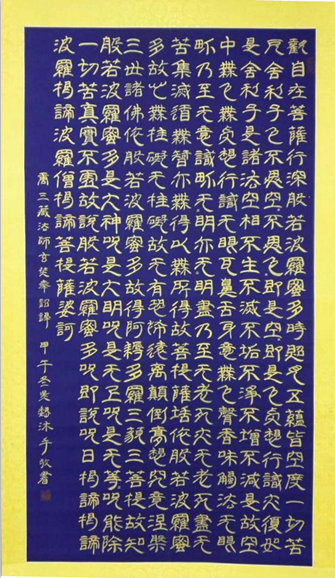 觀自在菩薩行深般若波羅蜜多時照見五蘊皆空度一切苦
厄舍利子色不異空空不異色色即是空空即是色受想行識亦復如
是舍利子是諸法空相不生不滅不垢不淨不增不減是故空
中無色無受想行識无眼耳鼻舌身意無色聲香味觸法无眼
界乃至无意識界无无明亦无无明盡乃至无老死亦无老死盡无
苦集滅道無智亦無得以無所得故菩提薩埵依般若波羅蜜
多故心無罣礙无罣礙故无有恐怖遠離顛倒夢想究竟涅槃
三世諸佛依般若波羅蜜多故得阿耨多羅三藐三菩提故知
般若波羅蜜多是大神咒是大明咒是无上咒是无等等咒能除
一切苦真實不虛故說般若波羅蜜多咒即說咒曰揭諦揭諦
波羅揭諦波羅僧揭諦菩提薩婆訶
唐三藏法師玄奘奉詔譯 甲午冬吳沐手敬書